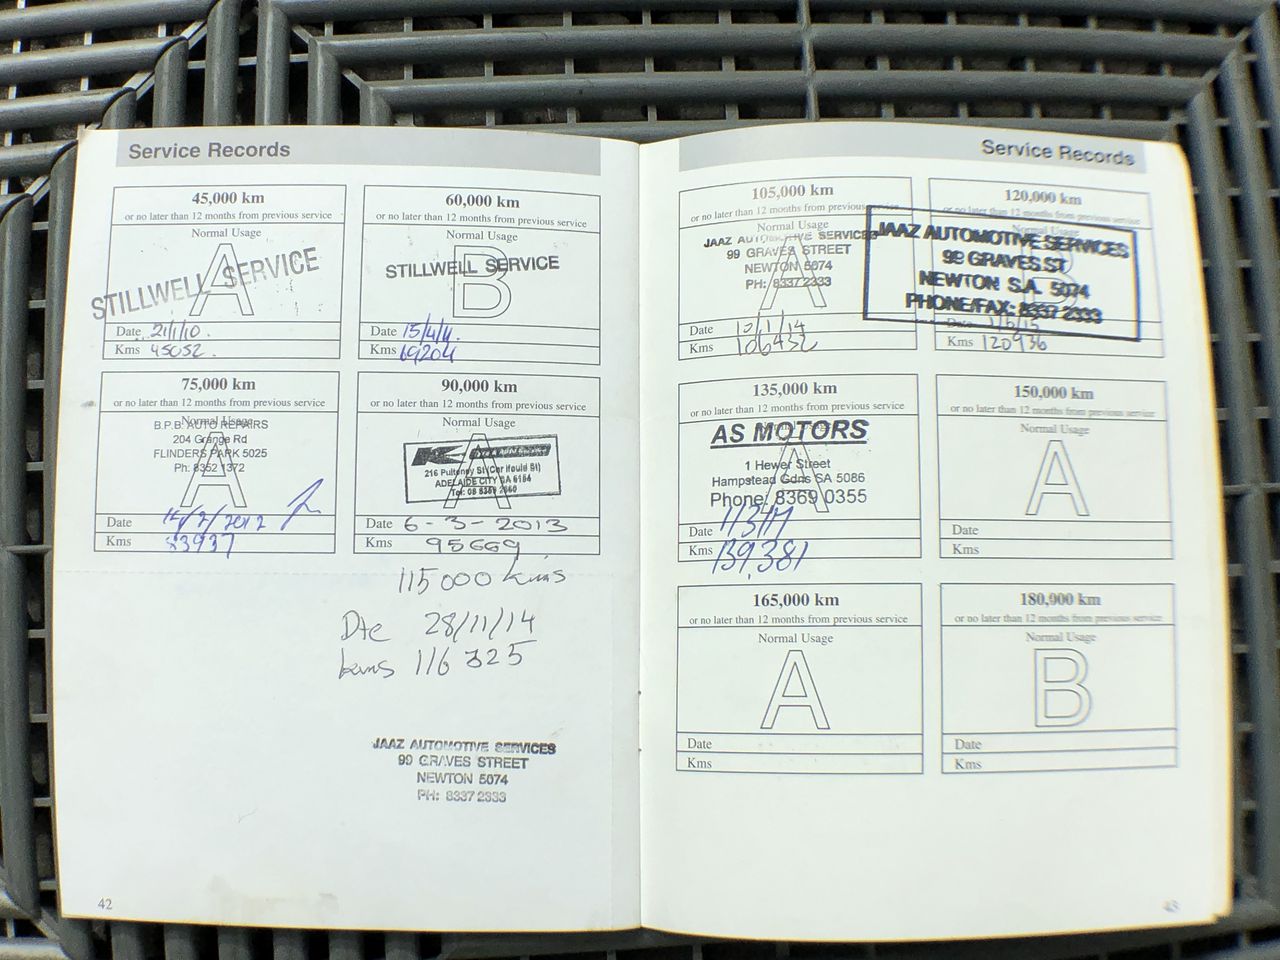 Service Records
45,000 km
or no later than 12 months from previous service
Normal Usage
A
STILLWELL SERVICE
Date 21/1/10.
Kms 45052.
60,000 km
or no later than 12 months from previous service
Normal Usage
B
STILLWELL SERVICE
Date 15/4/11.
Kms 69204
75,000 km
or no later than 12 months from previous service
Normal Usage
A
B.P.B. AUTO REPAIRS
204 Grange Rd
FLINDERS PARK 5025
Ph: 8352 1372
Date /2/2012
Kms 83937
90,000 km
or no later than 12 months from previous service
Normal Usage
A
216 Pulteney St (Cnr Ifould St)
ADELAIDE CITY SA
Tel: 08 8359
Date 6-3-2013
Kms 95669
115000 kms
Dte 28/11/14
kms 116325
JAAZ AUTOMOTIVE SERVICES
99 GRAVES STREET
NEWTON 5074
PH: 8337 2333
42
Service Records
105,000 km
or no later than 12 months from previous service
Normal Usage
A
JAAZ AUTOMOTIVE SERVICES
99 GRAVES STREET
NEWTON 5074
PH: 8337 2333
Date 10/1/14
Kms 106432
120,000 km
or no later than 12 months from previous service
B
JAAZ AUTOMOTIVE SERVICES
99 GRAVES ST
NEWTON S.A. 5074
PHONE/FAX: 8337 2333
Date
Kms 120936
135,000 km
or no later than 12 months from previous service
Normal Usage
A
AS MOTORS
1 Hewer Street
Hampstead Gdns SA 5086
Phone: 8369 0355
Date 1/3/17
Kms 139,381
150,000 km
or no later than 12 months from previous service
Normal Usage
A
Date
Kms
165,000 km
or no later than 12 months from previous service
Normal Usage
A
Date
Kms
180,000 km
or no later than 12 months from previous service
Normal Usage
B
Date
Kms
43